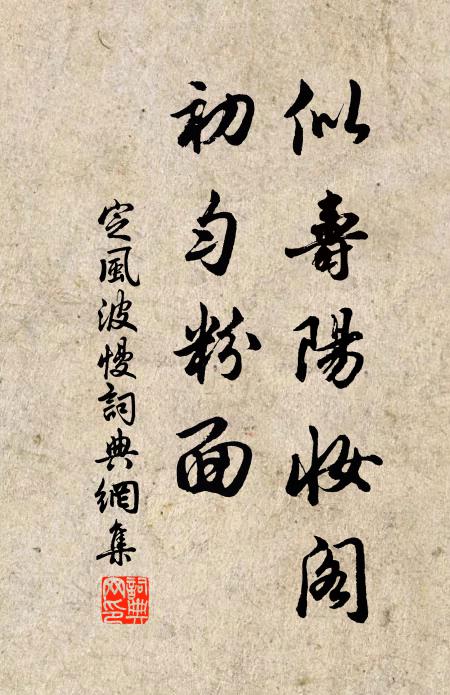 似壽陽妝阁
初勻粉面
定風波慢詞典網集
詞典网印